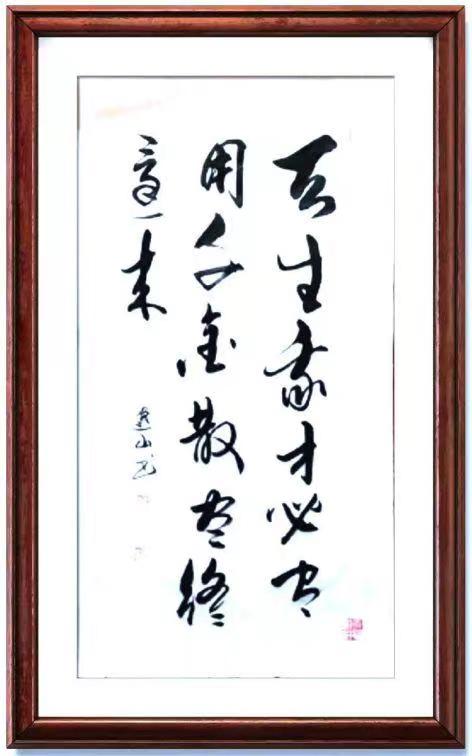 天生我才必有
用千金散尽終
還来
山书